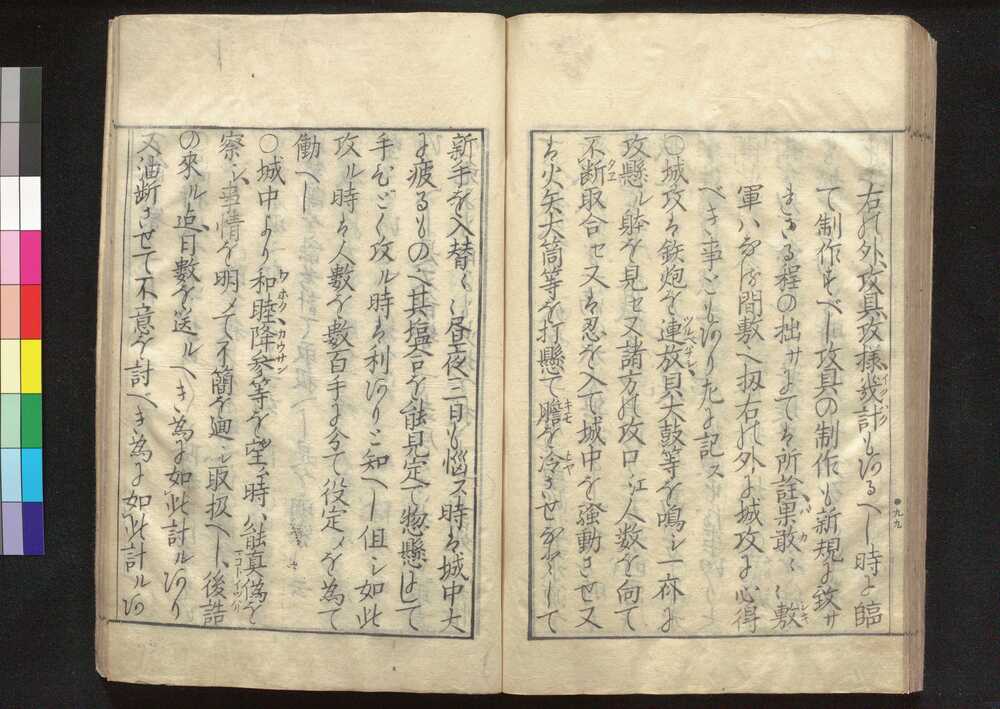 右の外攻具攻様幾計もあるへし時よ臨
て制作すべし攻具の制作も新規に致サ
まゝる程の拙サよては所詮果敢〻敷
軍ハならす間敷へ扨右の外に城攻に心得
べき事どもあり左に記ス
○城攻は鉄炮を連放貝大鼓等を鳴シ一斉に
攻懸ル躰を見セ又諸方の攻口江人数を向て
不断取合セ又は忍を入て城中を騒動させ又
は火矢大筒等を打懸て膽を冷させをくして
九九
新手を入替〻昼夜三日も悩ス時は城中大
に疲るもの〻其塩合を能見定て惣懸はして
手ひどく攻ル時は利ありと知へし但シ如此
攻ル時は人数を数百手に分て役定メを為て
働へし
○城中より和睦降参等を望ム時ハ能真偽を
察シ事情を明メて了簡を廻シ取扱へし後詰
の來ル迄日數を送ルへき為に如此計ルあり
又油断させて不意を討へき為に如此計ルあ